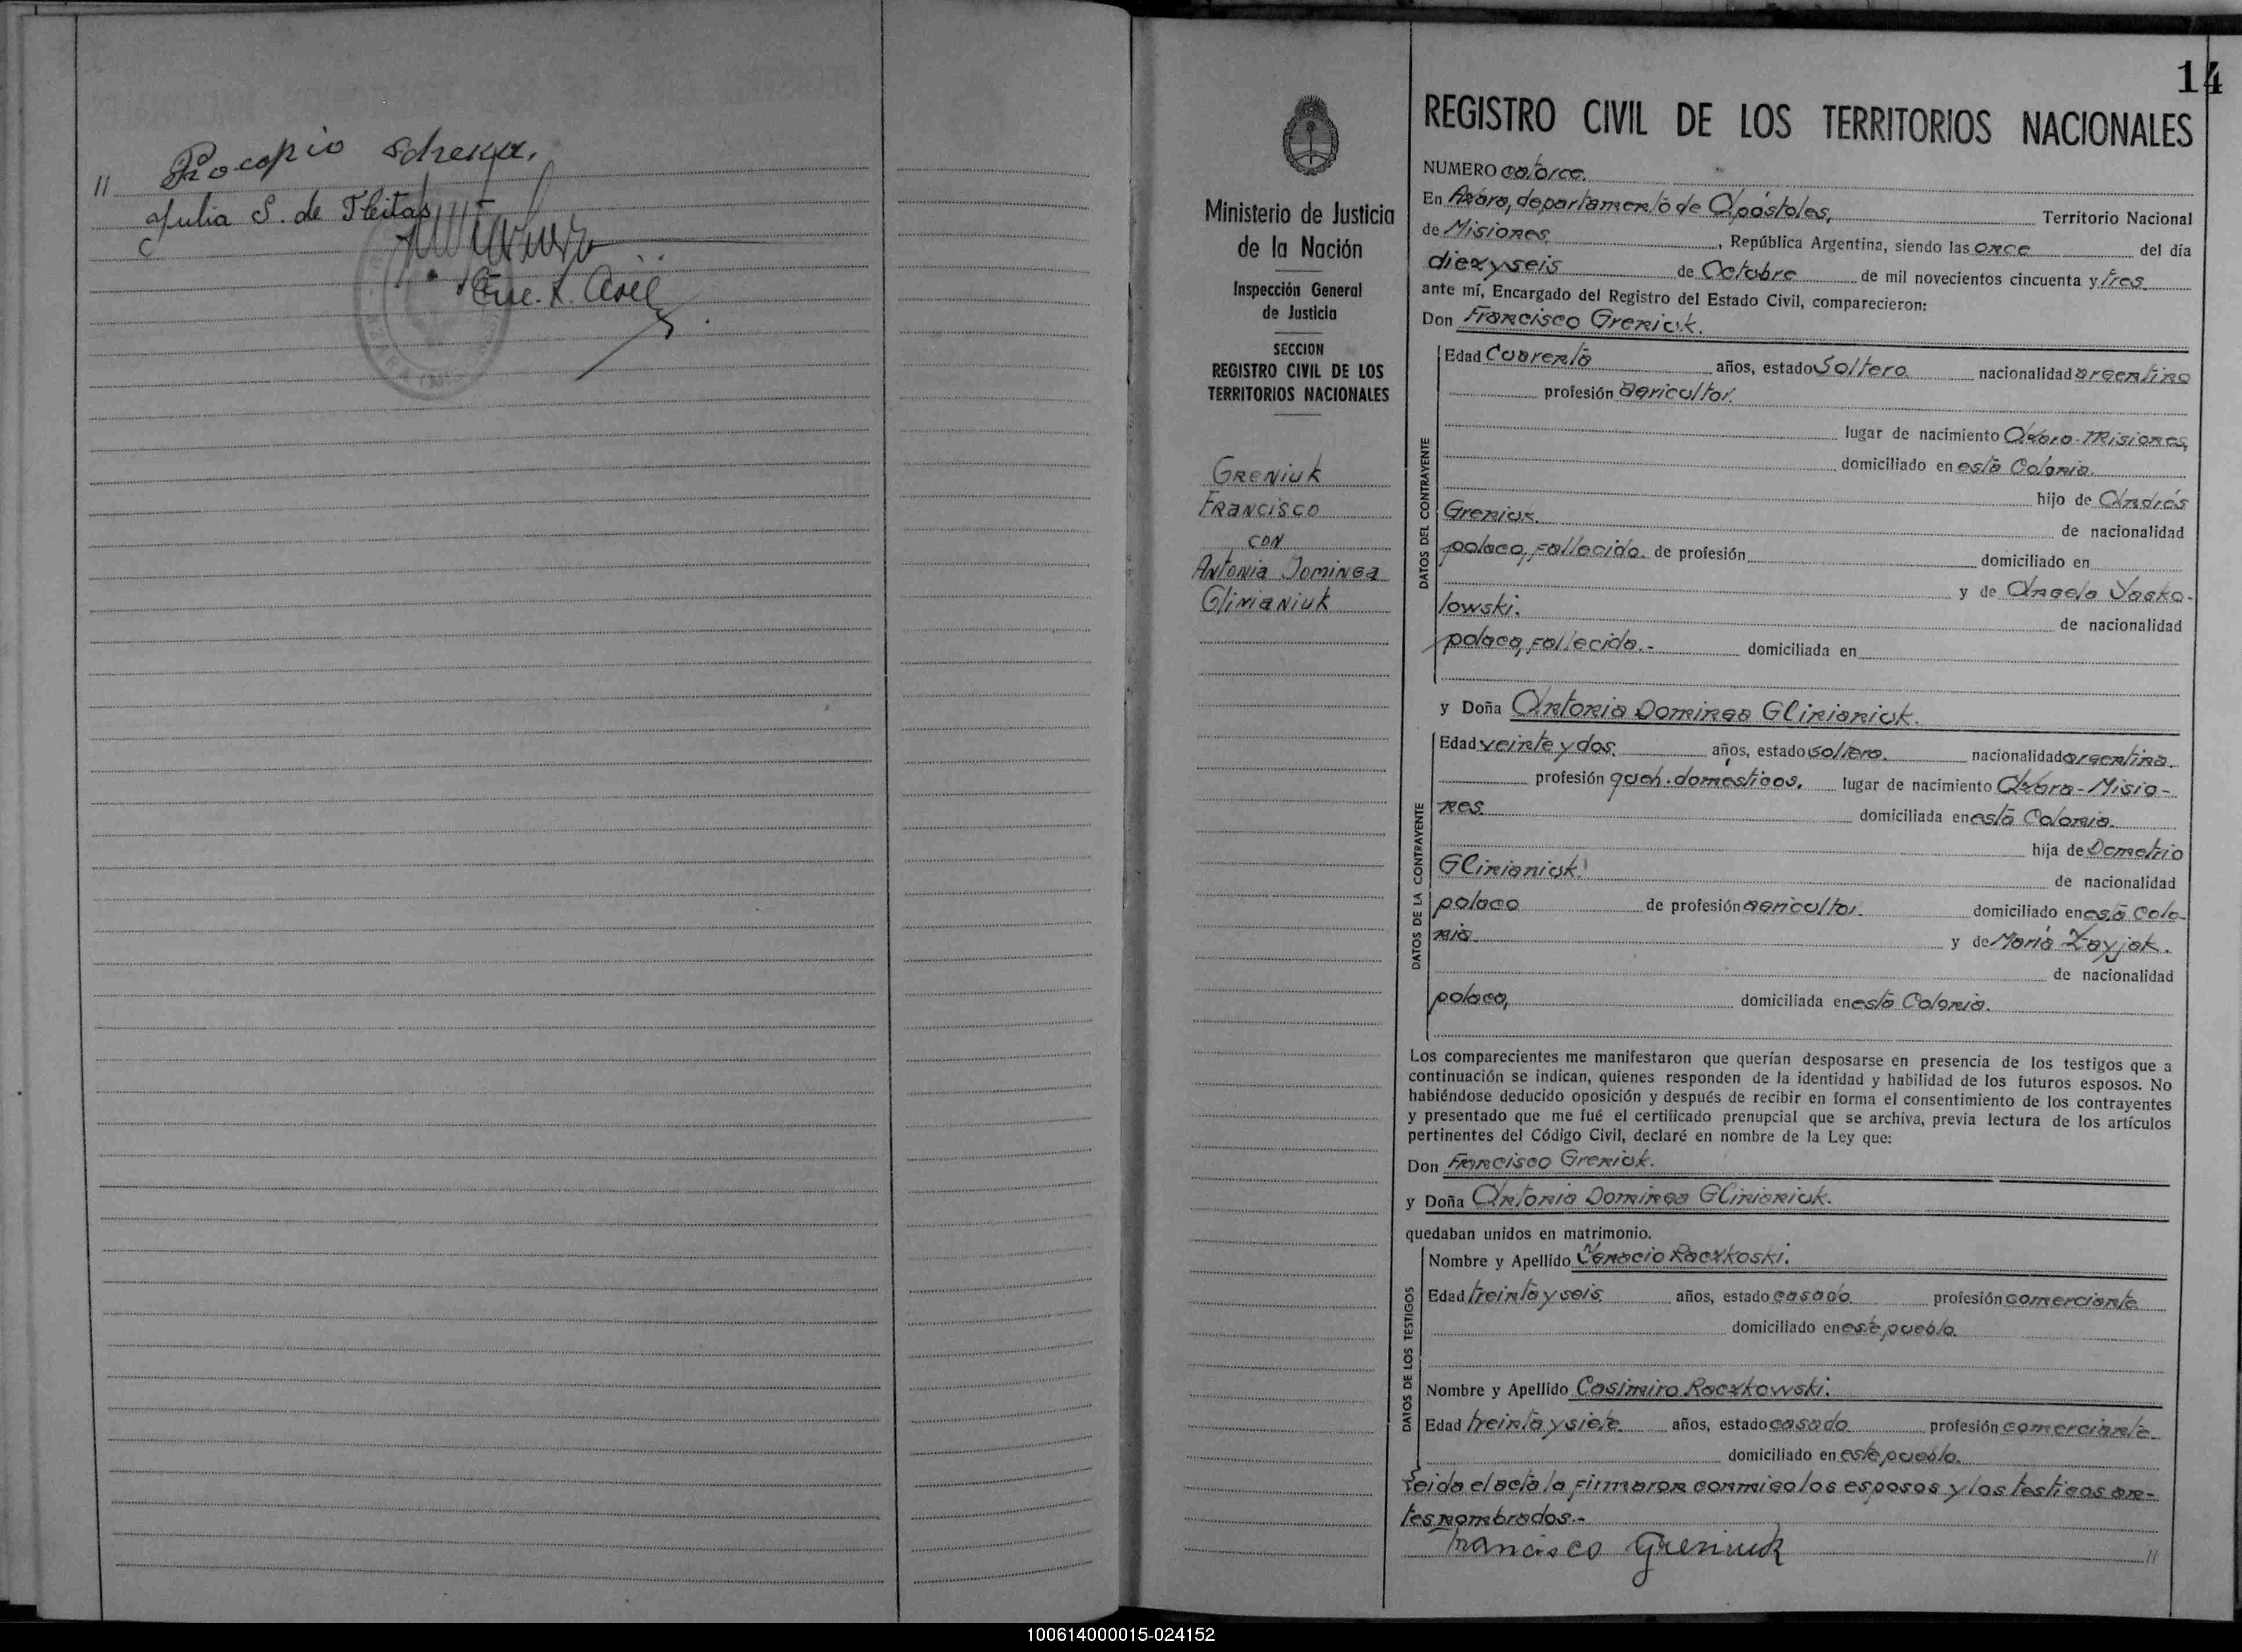 Procopio
//
Julia S. de Fleitas
Enc. R. Civil
14
REGISTRO CIVIL DE LOS TERRITORIOS NACIONALES
Ministerio de Justicia
de la Nación
Inspección General
de Justicia
SECCION
REGISTRO CIVIL DE LOS
TERRITORIOS NACIONALES
GRENIUK
FRANCISCO
CON
ANTONIA DOMINGA
GLINIANIUK
NUMERO catorce.
En Azara, departamento de Apóstoles, Territorio Nacional
de Misiones, República Argentina, siendo las once del día
diez y seis de Octubre de mil novecientos cincuenta y tres.
ante mí, Encargado del Registro del Estado Civil, comparecieron:
Don Francisco Greniuk.
DATOS DEL CONTRAYENTE
Edad Cuarenta años, estado Soltero nacionalidad argentino
profesión agricultor.
lugar de nacimiento Azara-Misiones,
domiciliado en esta Colonia.
hijo de Andrés
Greniuk. de nacionalidad
polaco, fallecido. de profesión domiciliado en
y de Angela Yasko-
lowski. de nacionalidad
polaca, fallecida.- domiciliada en
y Doña Antonia Dominga Glinianiuk.
DATOS DE LA CONTRAYENTE
Edad veinte y dos. años, estado soltera. nacionalidad argentina.
profesión queh. domésticos. lugar de nacimiento Azara-Misio-
nes. domiciliada en esta Colonia.
hija de Demetrio
Glinianiuk. de nacionalidad
polaco de profesión agricultor. domiciliado en esta Colo-
nia. y de María Zayjak.
de nacionalidad
polaca, domiciliada en esta Colonia.
Los comparecientes me manifestaron que querían desposarse en presencia de los testigos que a
continuación se indican, quienes responden de la identidad y habilidad de los futuros esposos. No
habiéndose deducido oposición y después de recibir en forma el consentimiento de los contrayentes
y presentado que me fué el certificado prenupcial que se archiva, previa lectura de los artículos
pertinentes del Código Civil, declaré en nombre de la Ley que:
Don Francisco Greniuk.
y Doña Antonia Dominga Glinianiuk.
quedaban unidos en matrimonio.
DATOS DE LOS TESTIGOS
Nombre y Apellido Ygnacio Raczkoski.
Edad treinta y seis. años, estado casado profesión comerciante
domiciliado en este pueblo.
Nombre y Apellido Casimiro Raczkowski.
Edad treinta y siete años, estado casado profesión comerciante
domiciliado en este pueblo.
Leida el acta la firmaron conmigo los esposos y los testigos an-
tes nombrados.-
Francisco Greniuk
//
100614000015-024152